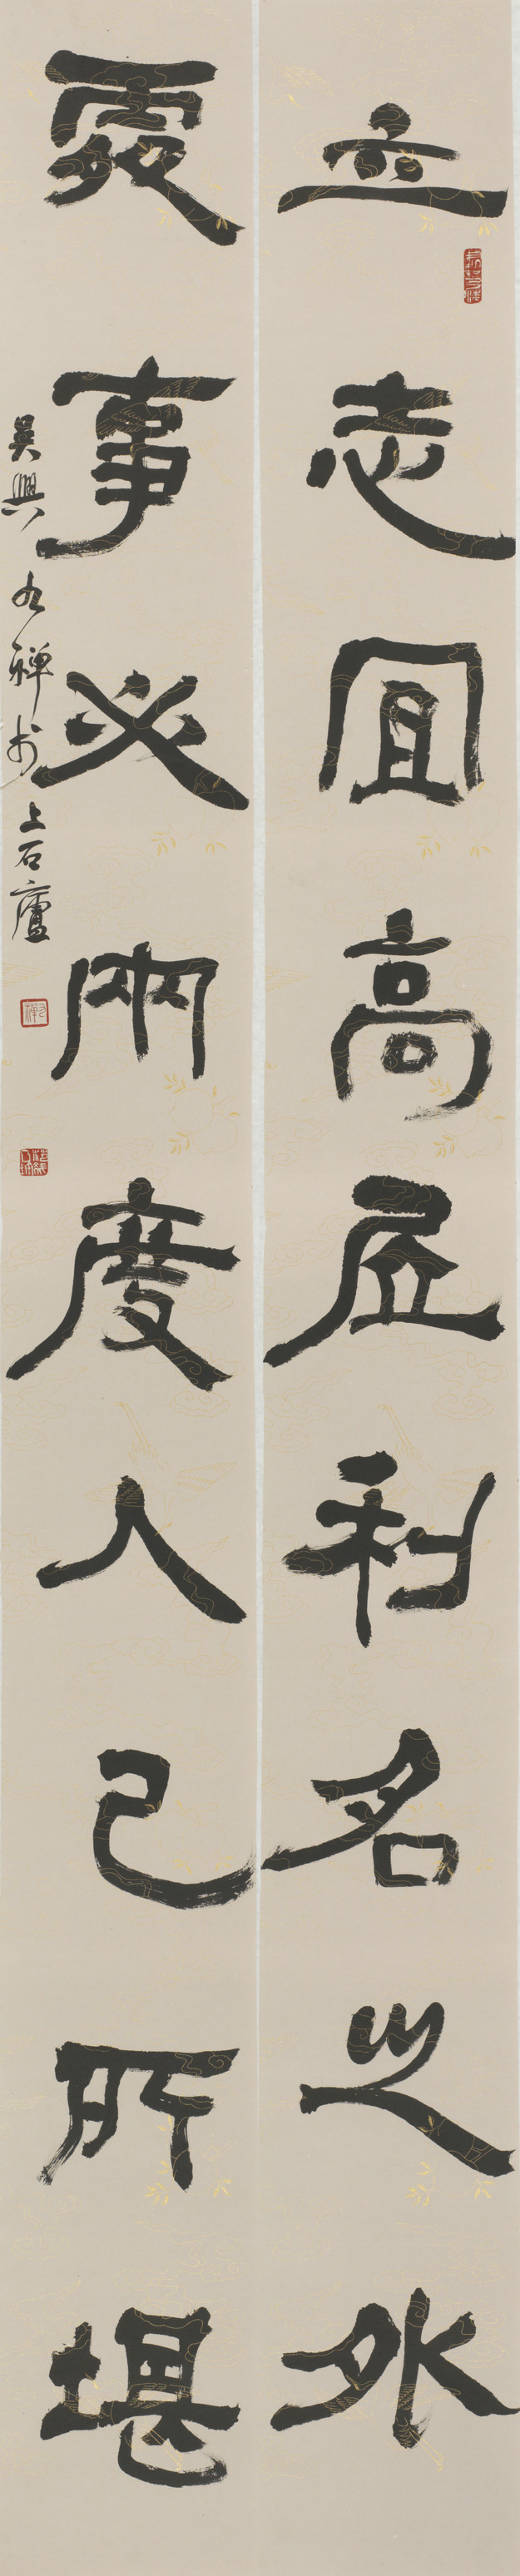 立志宜高居利名之外
處事必兩度人己所堪
吳興 九禪 於上石廬